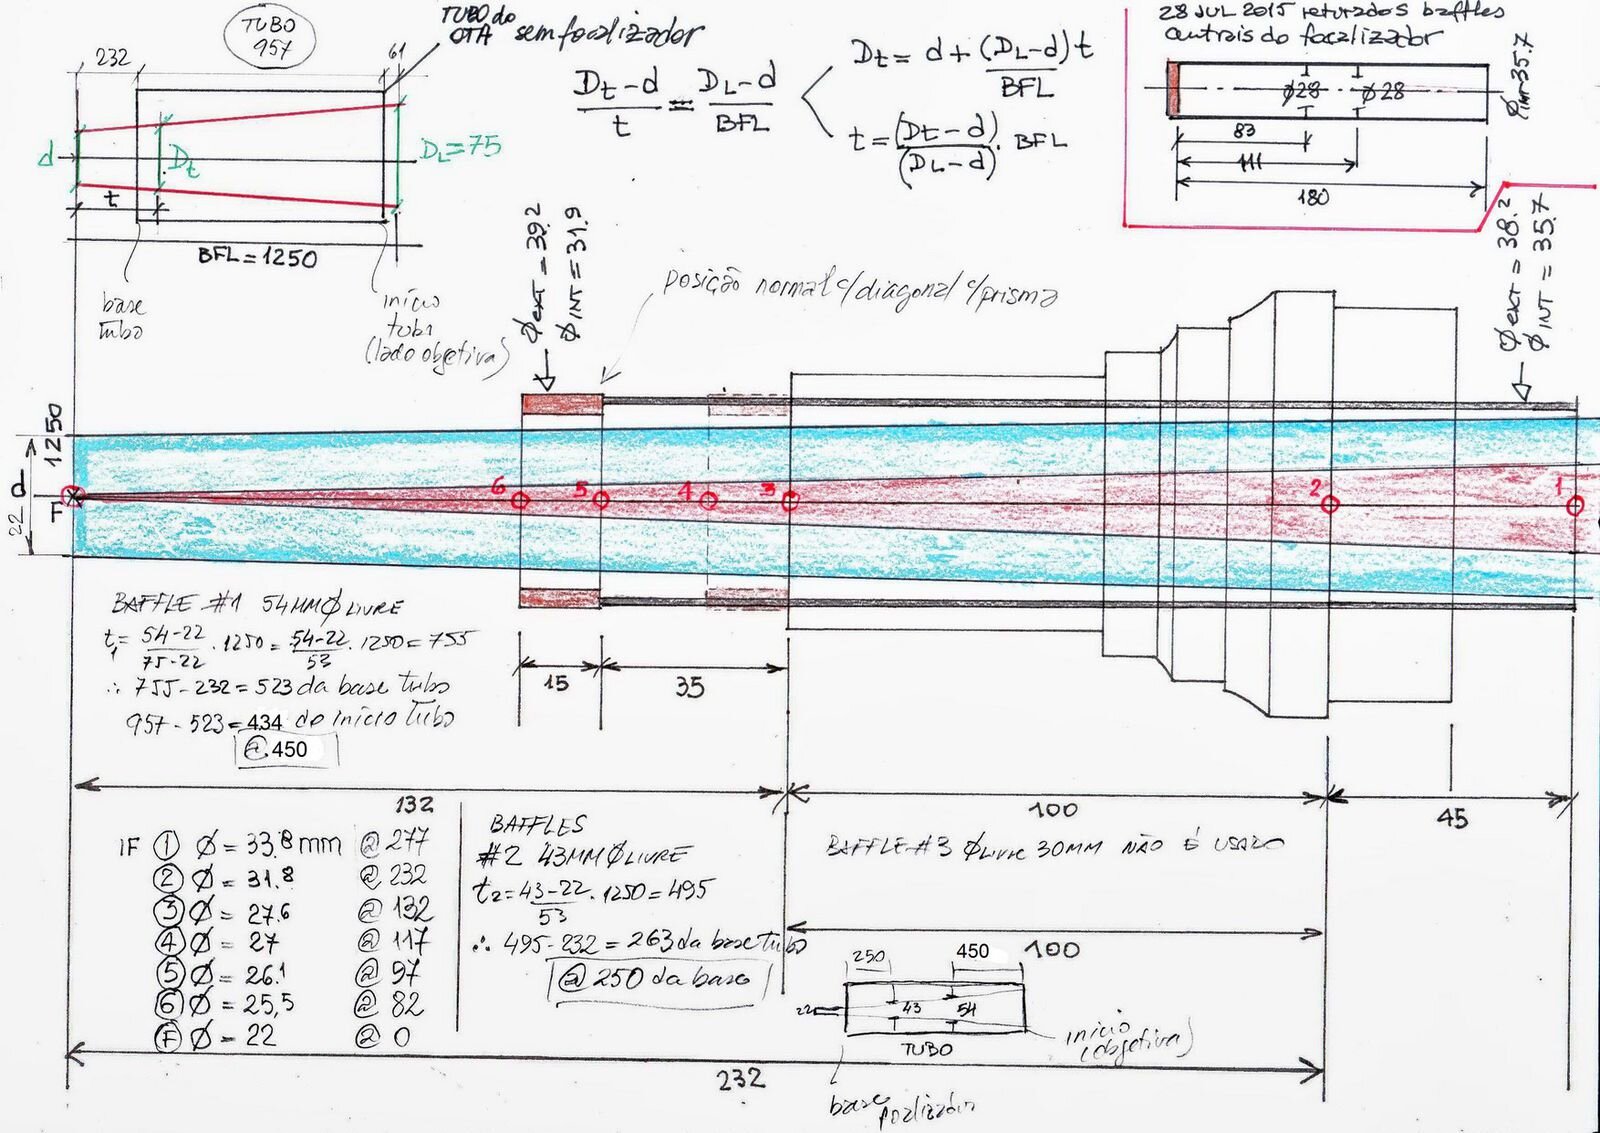 TUBO
957
232
61
TUBO do
OTA sem focalizador
d
Dt
DL=75
t
BFL=1250
base
tubo
início
tubo
(lado objetiva)
Dt - d
t
=
DL - d
BFL
Dt = d + (DL-d) t
BFL
t = (Dt - d) . BFL
(DL - d)
28 JUL 2015 retirados baffles
centrais do focalizador
ϕ28
ϕ28
ϕINT=35.7
83
111
180
ϕEXT = 39.2
ϕINT = 31.9
posição normal c/diagonal c/prisma
ϕEXT = 38.2
ϕINT = 35.7
1250
d
22
F
6
5
4
3
2
1
BAFFLE #1 54MMϕ LIVRE
t1= 54-22 . 1250 = 54-22 . 1250 = 755
75-22
53
∴ 755-232 = 523 da base tubo
957 - 523 = 434 do início tubo
@ 450
15
35
132
100
45
IF ① Ø = 33.8 mm @ 277
② Ø = 31.8 @ 232
③ Ø = 27.6 @ 132
④ Ø = 27 @ 117
⑤ Ø = 26.1 @ 97
⑥ Ø = 25,5 @ 82
Ⓕ Ø = 22 @ 0
BAFFLES
#2 43MM ϕ LIVRE
t2 = 43-22 . 1250 = 495
53
∴ 495-232 = 263 da base tubo
@ 250 da base
BAFFLE #3 ϕLIVRE 30MM NÃO É USADO
100
250
450
22
43
54
TUBO
início
(objetiva)
base
focalizador
232